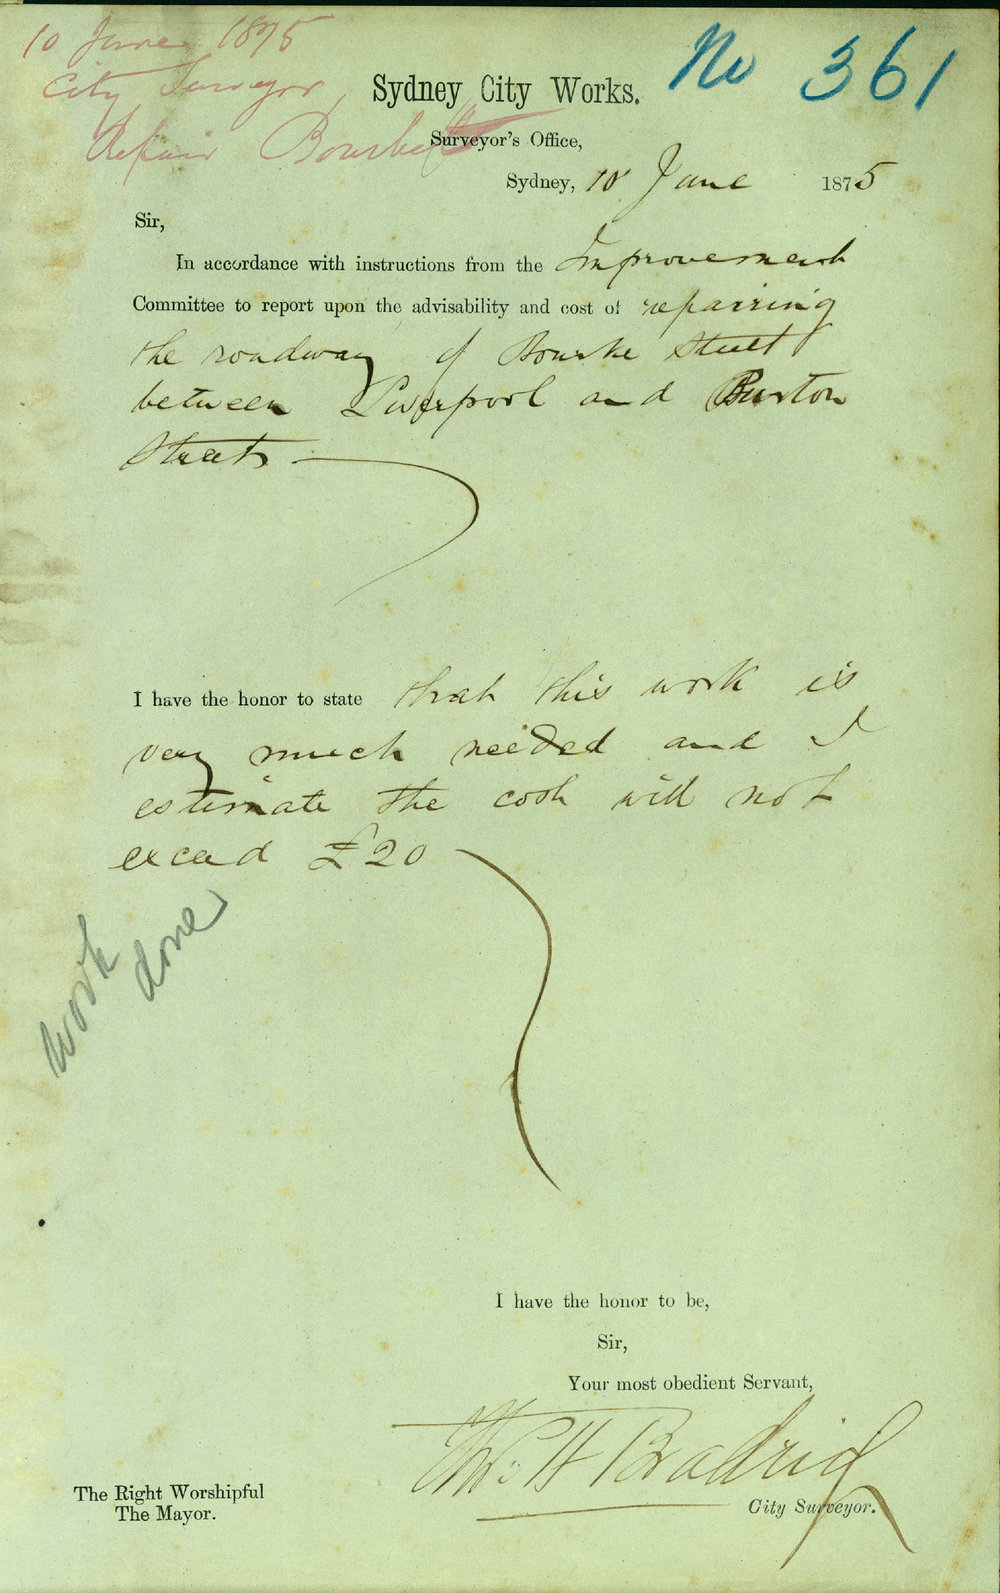 10 June 1875
City Surveyor
Repair Bourke St
No 361
Sydney City Works.
Surveyor's Office,
Sydney, 10 June 1875
Sir,
In accordance with instructions from the Improvement
Committee to report upon the advisability and cost of repairing
the roadway of Bourke Street
between Liverpool and Burton
Streets
I have the honor to state that this work is
very much needed and I
estimate the cost will not
exceed £20
work
done
I have the honor to be,
Sir,
Your most obedient Servant,
Thos H Bradridge
City Surveyor.
The Right Worshipful
The Mayor.